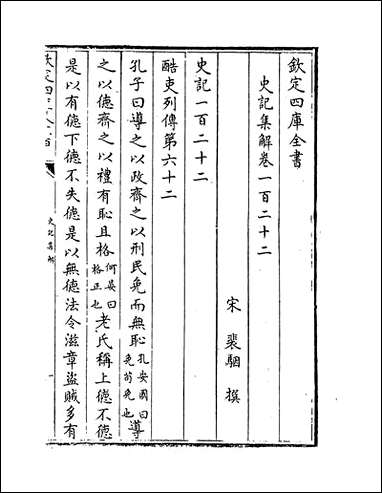 欽定四庫全書
史記集解卷一百二十二
宋 裴駰 撰
史記一百二十二
酷吏列傳第六十二
孔子曰導之以政齊之以刑民免而無恥孔安國曰免苟免也導
之以德齊之以禮有恥且格何晏曰格正也老氏稱上德不德
是以有德下德不失德是以無德法令滋章盜賊多有
欽定四庫全書
史記集解